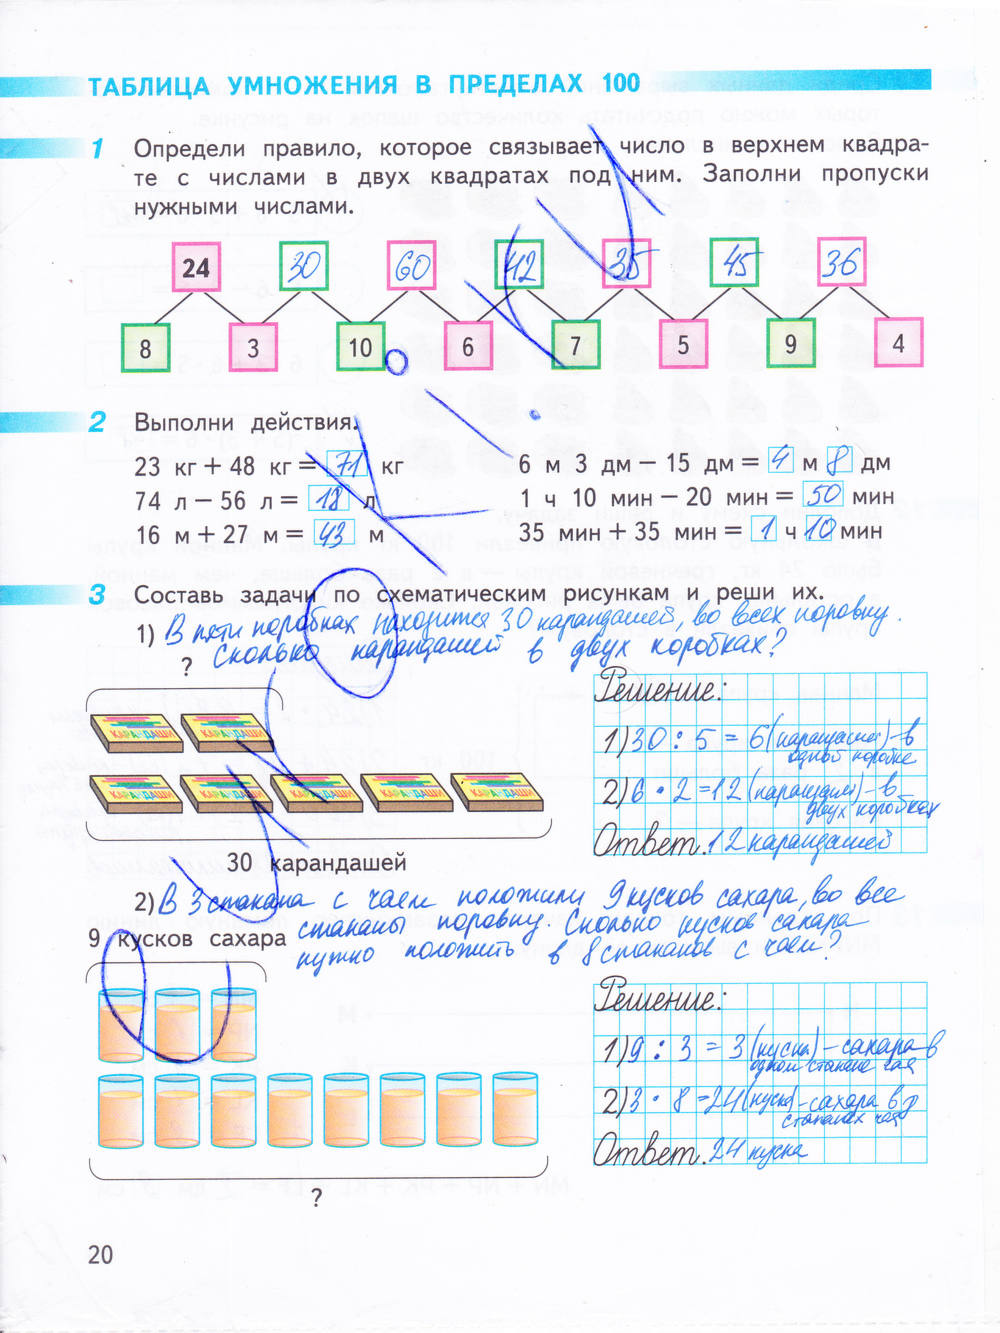 ТАБЛИЦА УМНОЖЕНИЯ В ПРЕДЕЛАХ 100
1 Определи правило, которое связывает число в верхнем квадра-
те с числами в двух квадратах под ним. Заполни пропуски
нужными числами.
24 30 60 42 35 45 36
8 3 10 6 7 5 9 4
2 Выполни действия.
23 кг + 48 кг = 71 кг
6 м 3 дм − 15 дм = 4 м 8 дм
74 л − 56 л = 18 л
1 ч 10 мин − 20 мин = 50 мин
16 м + 27 м = 43 м
35 мин + 35 мин = 1 ч 10 мин
3 Составь задачи по схематическим рисункам и реши их.
1) В пяти коробках находится 30 карандашей, во всех поровну.
Сколько карандашей в двух коробках?
?
КАРАНДАШИ КАРАНДАШИ
КАРАНДАШИ КАРАНДАШИ КАРАНДАШИ КАРАНДАШИ КАРАНДАШИ
30 карандашей
Решение:
1) 30 : 5 = 6 (карандашей) – в
одной коробке
2) 6 · 2 = 12 (карандашей) – в
двух коробках
Ответ. 12 карандашей
2) В 3 стакана с чаем положили 9 кусков сахара, во все
стаканы поровну. Сколько кусков сахара
нужно положить в 8 стаканов с чаем?
9 кусков сахара
?
Решение:
1) 9 : 3 = 3 (куска) – сахара в
одном стакане чая
2) 3 · 8 = 24 (куска) – сахара в 8
стаканах чая
Ответ. 24 куска
20